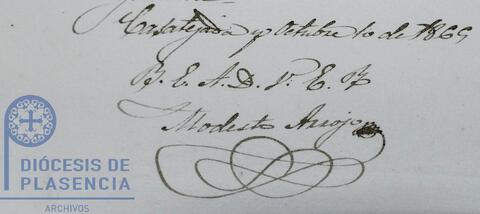 Casatejada y Octubre 10 de 1865
B. E. A. D. V. E. R.
Modesto Arrojo
DIÓCESIS DE
PLASENCIA
ARCHIVOS